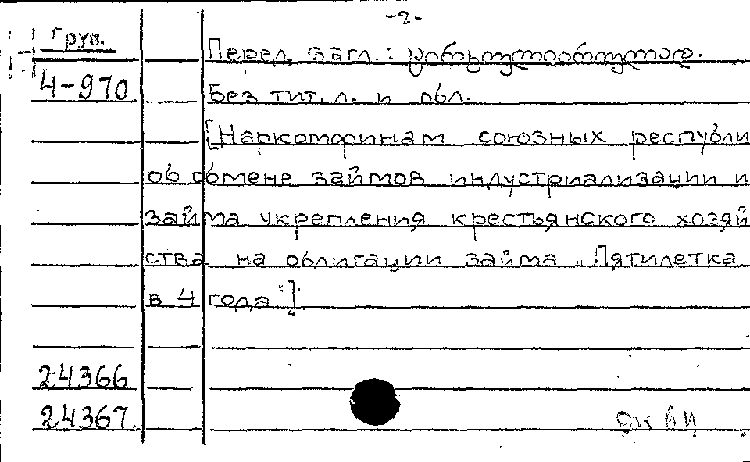 -2-
Груз.
Перед загл.:
4-970
Без тит. л. и обл.
[Наркомфинам союзных республи
об обмене займов индустриализации и
займа укрепления крестьянского хозяй
ства на облигации займа „Пятилетка
в 4 года"]
24366
24367